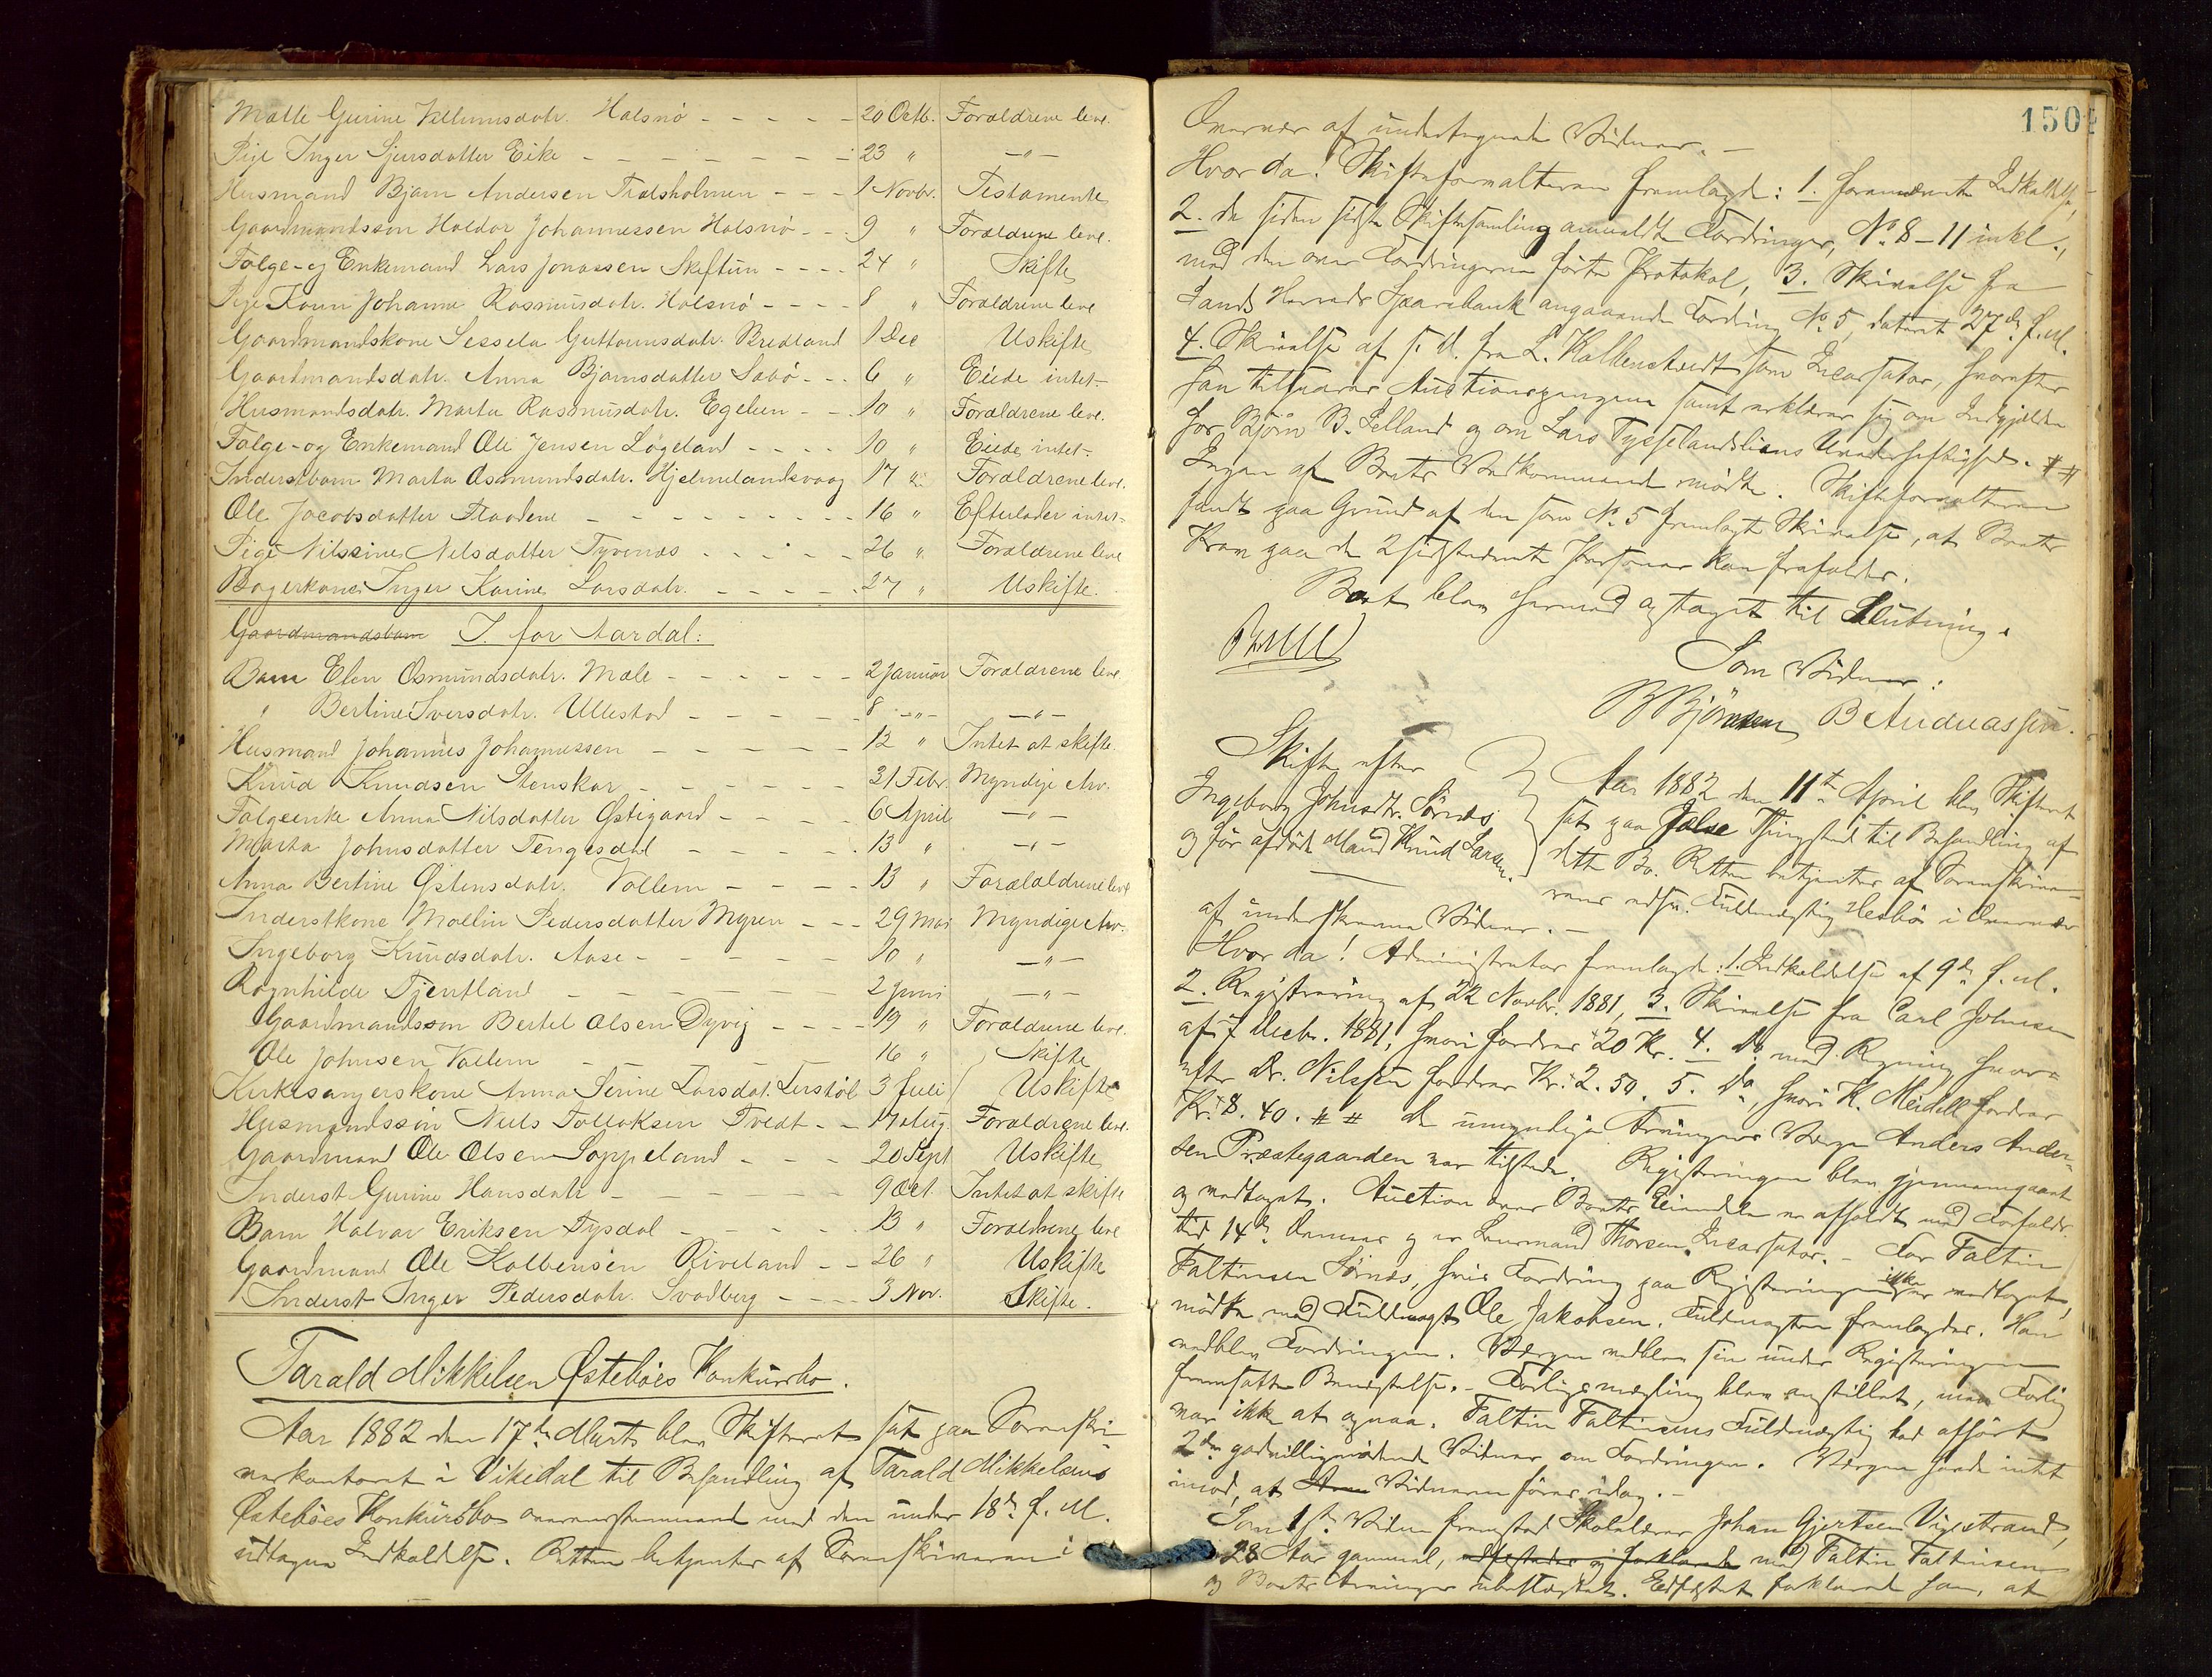 Malle Gurine Villumsdatr. Halsnö - - - - - 20 Octb. Forældrene leve.
Pige Inger Sjursdatter Eike - - - - - - - 23 " - " -
Husmand Bjarn Andersen Trælsholmen - - - 1 Novbr. Testamente
Gaardmandssøn Haldor Johannessen Halsnö - - 9 " Forældrene leve.
Følge- og Enkemand Lars Jonassen Skiftun - - - - 24 " Skifte
Pige Johanne Rasmusdatr. Halsnö - - - - 8 " Forældrene leve
Gaardmandskone Sessela Guttormsdatr. Bredland 1 Dec Uskifte
Gaardmandsdatr. Anna Bjarnsdatter Sabö - - - 6 " Eiede intet -
Husmandsdatr. Marta Rasmusdatr. Egeluen - - 10 " Forældrene leve.
Følge- og Enkemand Ole Jensen Løgeland - - - - 10 " Eiede intet -
Inderstbarn Marta Osmundsdatr. Hjelmelandsvaag 17 " Forældrene leve.
Ole Jacobsdatter - - - - - - - - - 16 " Efterlader intet -
Pige Nilssine Nilsdatter Tyvenæs - - - - - 26 " Forældrene leve
Bagerkone Inger Karine Larsdatr. - - - - - 27 " Uskifte.
Gaardmandsbarn I. for Aardal:
Barn Elen Osmundsdatr. Mæle - - - - - - 2 Januar Forældrene leve
" Bertine Iversdatr. Ullestad - - - - - - 8 - " - - " -
Husmand Johannes Johannessen - - - - - - 12 " Intet at skifte
Knud Knudsen Stenskar - - - - - - 21 Febr. Myndige Arv.
Følgeenke Anna Nilsdatter Østigaard - - - - 6 April - " -
Marta Johnsdatter Tengesdal - - - - - 13 " - " -
Anna Bertine Østensdatr. Vollem - - - - 13 " Forældrene leve
Inderstkone Mallin Pedersdatter Myren - - - 29 Mai Myndige Arv.
Ingeborg Knudsdatr. Aase - - - - - - 10 " - " -
Ragnhilde Tjentland - - - - - - 2 Juni - " -
Gaardmandssøn Bertel Olsen Dyvig - - - - 19 " Forældrene leve.
Ole Johnsen Vallem - - - 16 " Skifte
Kirkesangerskone Anna Serine Larsdat. 3 Juli Uskifte
Husmandssøn Niels Tollaksen Tvedt - - 17 Aug. Forældrene leve.
Gaardmand Ole Olsen Soppeland - - - 20 Sept Uskifte
Inderst Gurine Hansdatr - - - - - - 9 Oct. Intet at skifte
Barn Halvar Eriksen Tysdal - - - - - 13 " Forældrene leve
Gaardmand Ole Kolbensen Riveland - - 26 " Uskifte
Inderst Inger Pedersdatr. Svadberg - - - 3 Nov. Skifte.
Tarald Mikkelsen Østebøes Konkursbo.
Aar 1882 den 17de Marts blev Skifteret sat paa Sorenskri-
verkontoret i Vikedal til Behandling af Tarald Mikkelsens
Østebøes Konkursbo overensstemmende med den under 18de f. M.
udtagne Indkaldelse. Retten betjentes af Sorenskriveren i
150
Overvær af undertegnede Vidner. -
Hvor da! Skifteforvalteren fremlagde: 1. forannævnte Indkaldelse,
2. de siden sidste Skiftesamling anmeldte Fordringer, No. 8 - 11 inkl.,
med den over Fordringerne førte Protokol, 3. Skrivelse fra
Sands Herreds Sparebank angaaende Fordring No. 5, dateret 27de f. M.
4. Skrivelse af s. D. fra L. Kolbenstvedt som Incassator, hvorefter
han tilsvarer Auctionspengene samt erklærer sig om Indgjælden
hos Björn B. Selland og om Lars Tysselandsliens Uvederheftighed. # #
Ingen af Boets Vedkommende mødte. Skifteforvalteren
fandt paa Grund af den som No. 5 fremlagte Skrivelse, at Boets
Krav paa de 2 sidstnævnte Personer kan frafaldes.
Boet blev hermed optaget til Slutning.
Som Vidner:
B Björnsen B Andreassen.
Skifte efter
Ingeborg Johnsdtr. Sørnæs
og før afdøde Mand Knud Larsen.
Aar 1882 den 11te April blev Skifteret
sat paa Jelse Thingsted til Behandling af
dette Bo. Retten betjentes af Sorenskrive-
rens edsv. Fuldmægtig Hesbö i Overvær
af underskrevne Vidner. -
Hvor da! Administrator fremlagde: 1. Indkaldelse af 9de f. M.
2. Registrering af 22 Novbr. 1881, 3. Skrivelse fra Carl Johnsen
af 7 Decbr. 1881, hvori fordres 20 Kr. 4. Do. med Regning hvor-
efter Dr. Nilssen fordrer Kr. 2. 50. 5. Do., hvori K. Meidell fordrer
Kr. 8. 40. # # De umyndige Arvingers Værge Anders Ander-
sen Præstegaarden var tilstede. Registreringen blev gjennemgaaet
og vedtaget. Auction over Boets Eiendele er afholdt med Forfalds-
tid 14de Januar og er Lensmand Thorsen Incassator. - For Faltin
Faltinsen Sørnæs, hvis Fordring paa Registreringen ikke er vedtaget,
mødte med Fuldmagt Ole Jakobsen. Fuldmagten fremlagdes. Han
vedblev Fordringen. Værgen vedblev sin under Registreringen
fremsatte Benægtelse. - Forligsmægling blev anstillet, men Forlig
var ikke at opnaa. Faltin Faltinsens Fuldmægtig bad afhørt
2de godvilligmødende Vidner om Fordringen. Værgen havde intet
imod, at Vidnerne føres idag. -
Som 1ste Vidne fremstod Skolelærer Johan Gjertsen Vigestrand,
28 Aar gammel, edfæstedes og forklarede med Faltin Faltinsen
og Boets Arvinger ubeslægtet. Edfæstet forklarede han, at